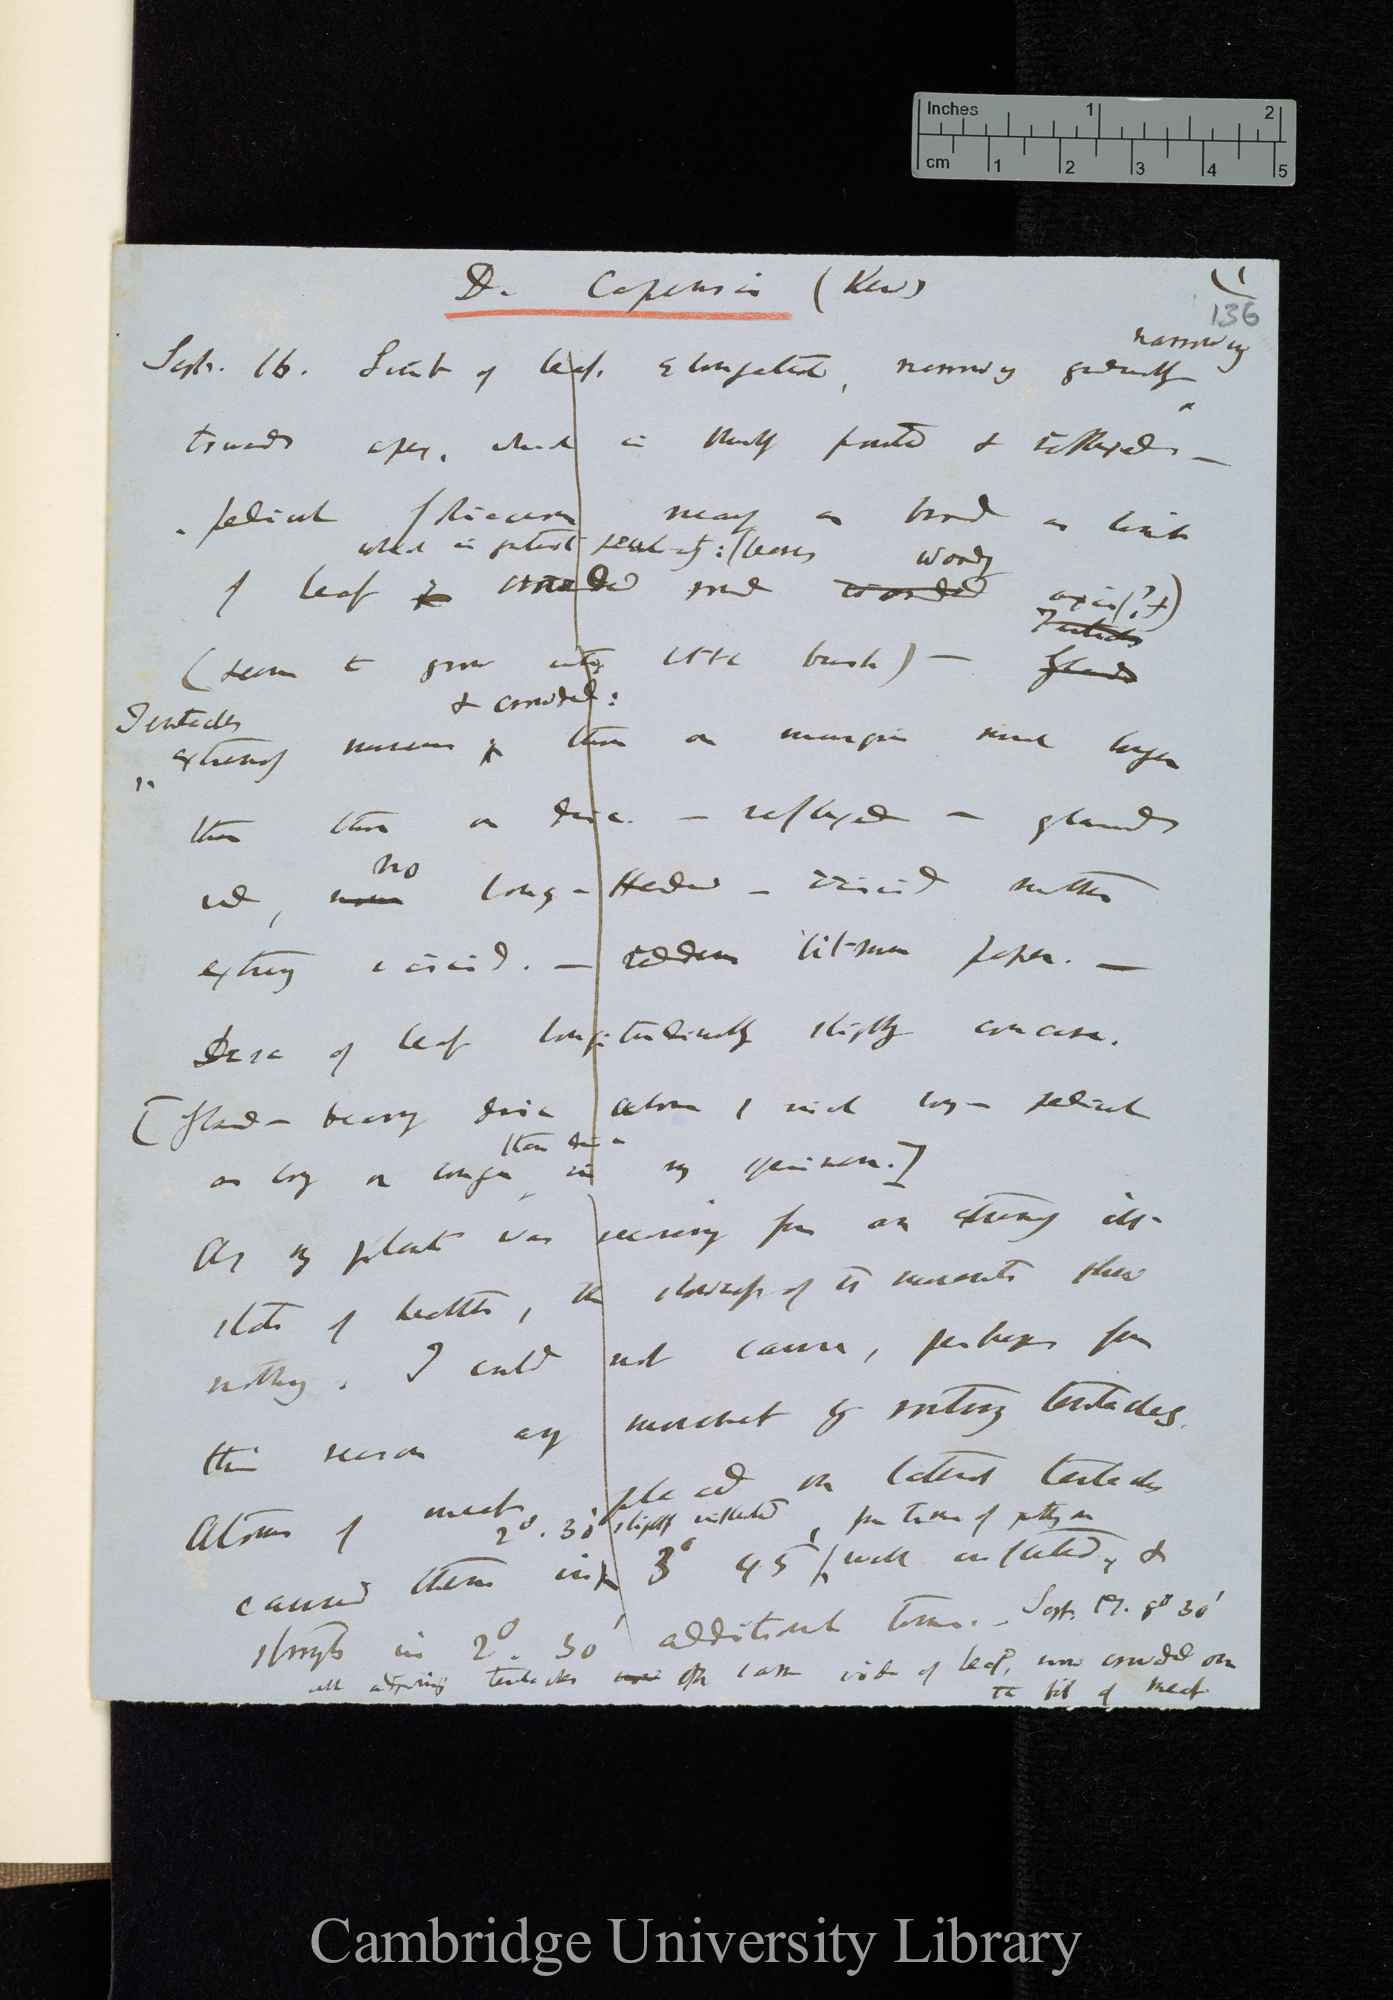 Inches 1 2
cm 1 2 3 4 5
D. Capensis (Kew)
(1
136
narrowing
Sept. 16. Limb of leaf, elongated, narrowing gradually
towards apex, which is bluntly pointed & reflexed —
pedicel nearly as broad as limb
which is
woody
of leaf crowded round crowded axis (?+)
Tentacles
(seem to grow into little bush) — Glands
& crowded:
Tentacles
extremely numerous those on margin much longer
than those on disc. — reflexed — glands
no
red, long-headed — viscid matter
extremely viscid. — reddens litmus paper. —
Disc of leaf longitudinally slightly concave.
[Gland-bearing disc above 1 inch long — pedicel
than disc
as long or longer in my specimen.]
As my plant was recovering from an extremely ill-
state of health, the slowness of its movements shew
nothing. I could not cause, perhaps from
this reason any movement by rubbing tentacles.
Atoms of meat placed on lateral tentacles
2°. 30' slightly inflected, from time of putting on
caused them in 3° 45' well inflected, &
strongly in 2°. 30' additional time. — Sept. 17. 8° 30'
all adjoining tentacles on same side of leaf, now crowded on
to bit of meat
Cambridge University Library